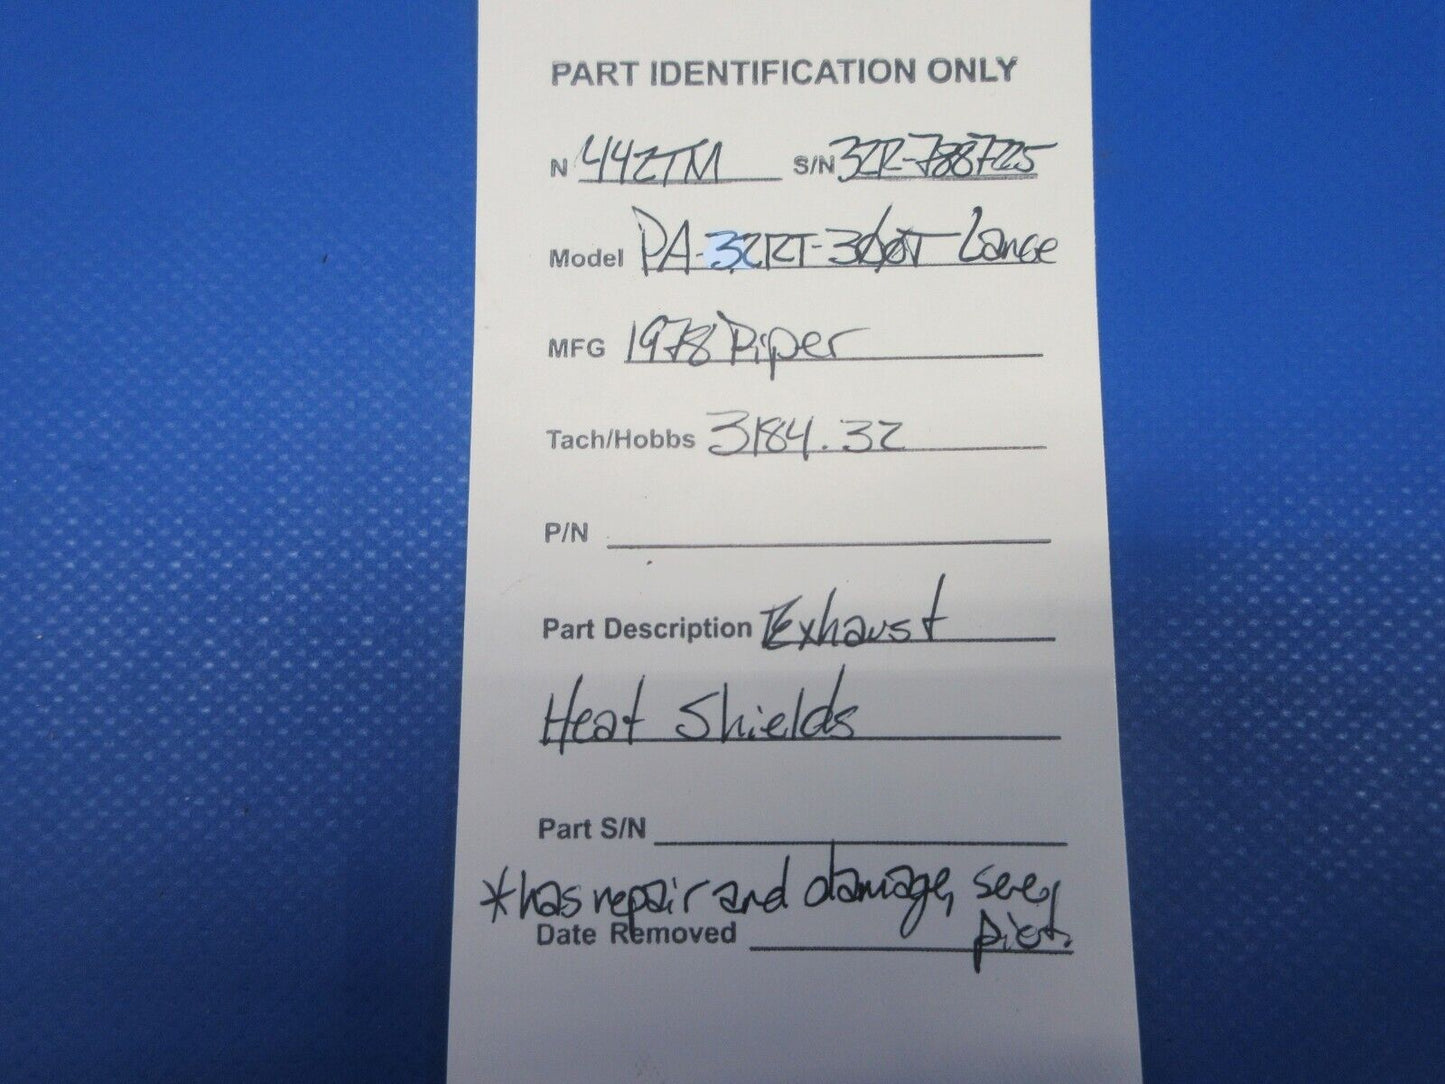 PART IDENTIFICATION ONLY
N 442TM S/N 32R-7887225
Model PA-32RT-300T Lance
MFG 1978 Piper
Tach/Hobbs 3184.32
P/N
Part Description Exhaust
Heat Shields
Part S/N
*has repair and damage, see
pict.
Date Removed